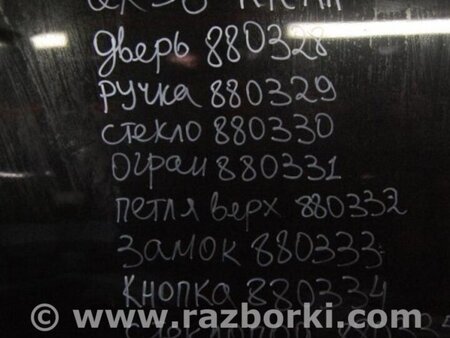 дверь 880328
ручка 880329
стекло 880330
Огран 880331
петля верх 880332
замок 880333
кнопка 880334
© www.razborki.com